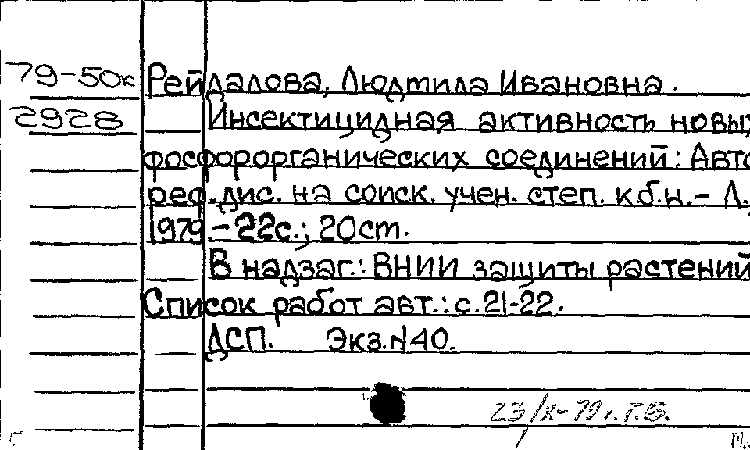 79-50к Рейдалова, Людмила Ивановна.
2928 Инсектицидная активность новых
фосфорорганических соединений: Авто
реф. дис. на соиск. учен. степ. к.б.н. - Л.,
1979 - 22с.; 20 см.
В надзаг.: ВНИИ защиты растений
Список работ авт.: с. 21-22.
ДСП. Экз. N40.